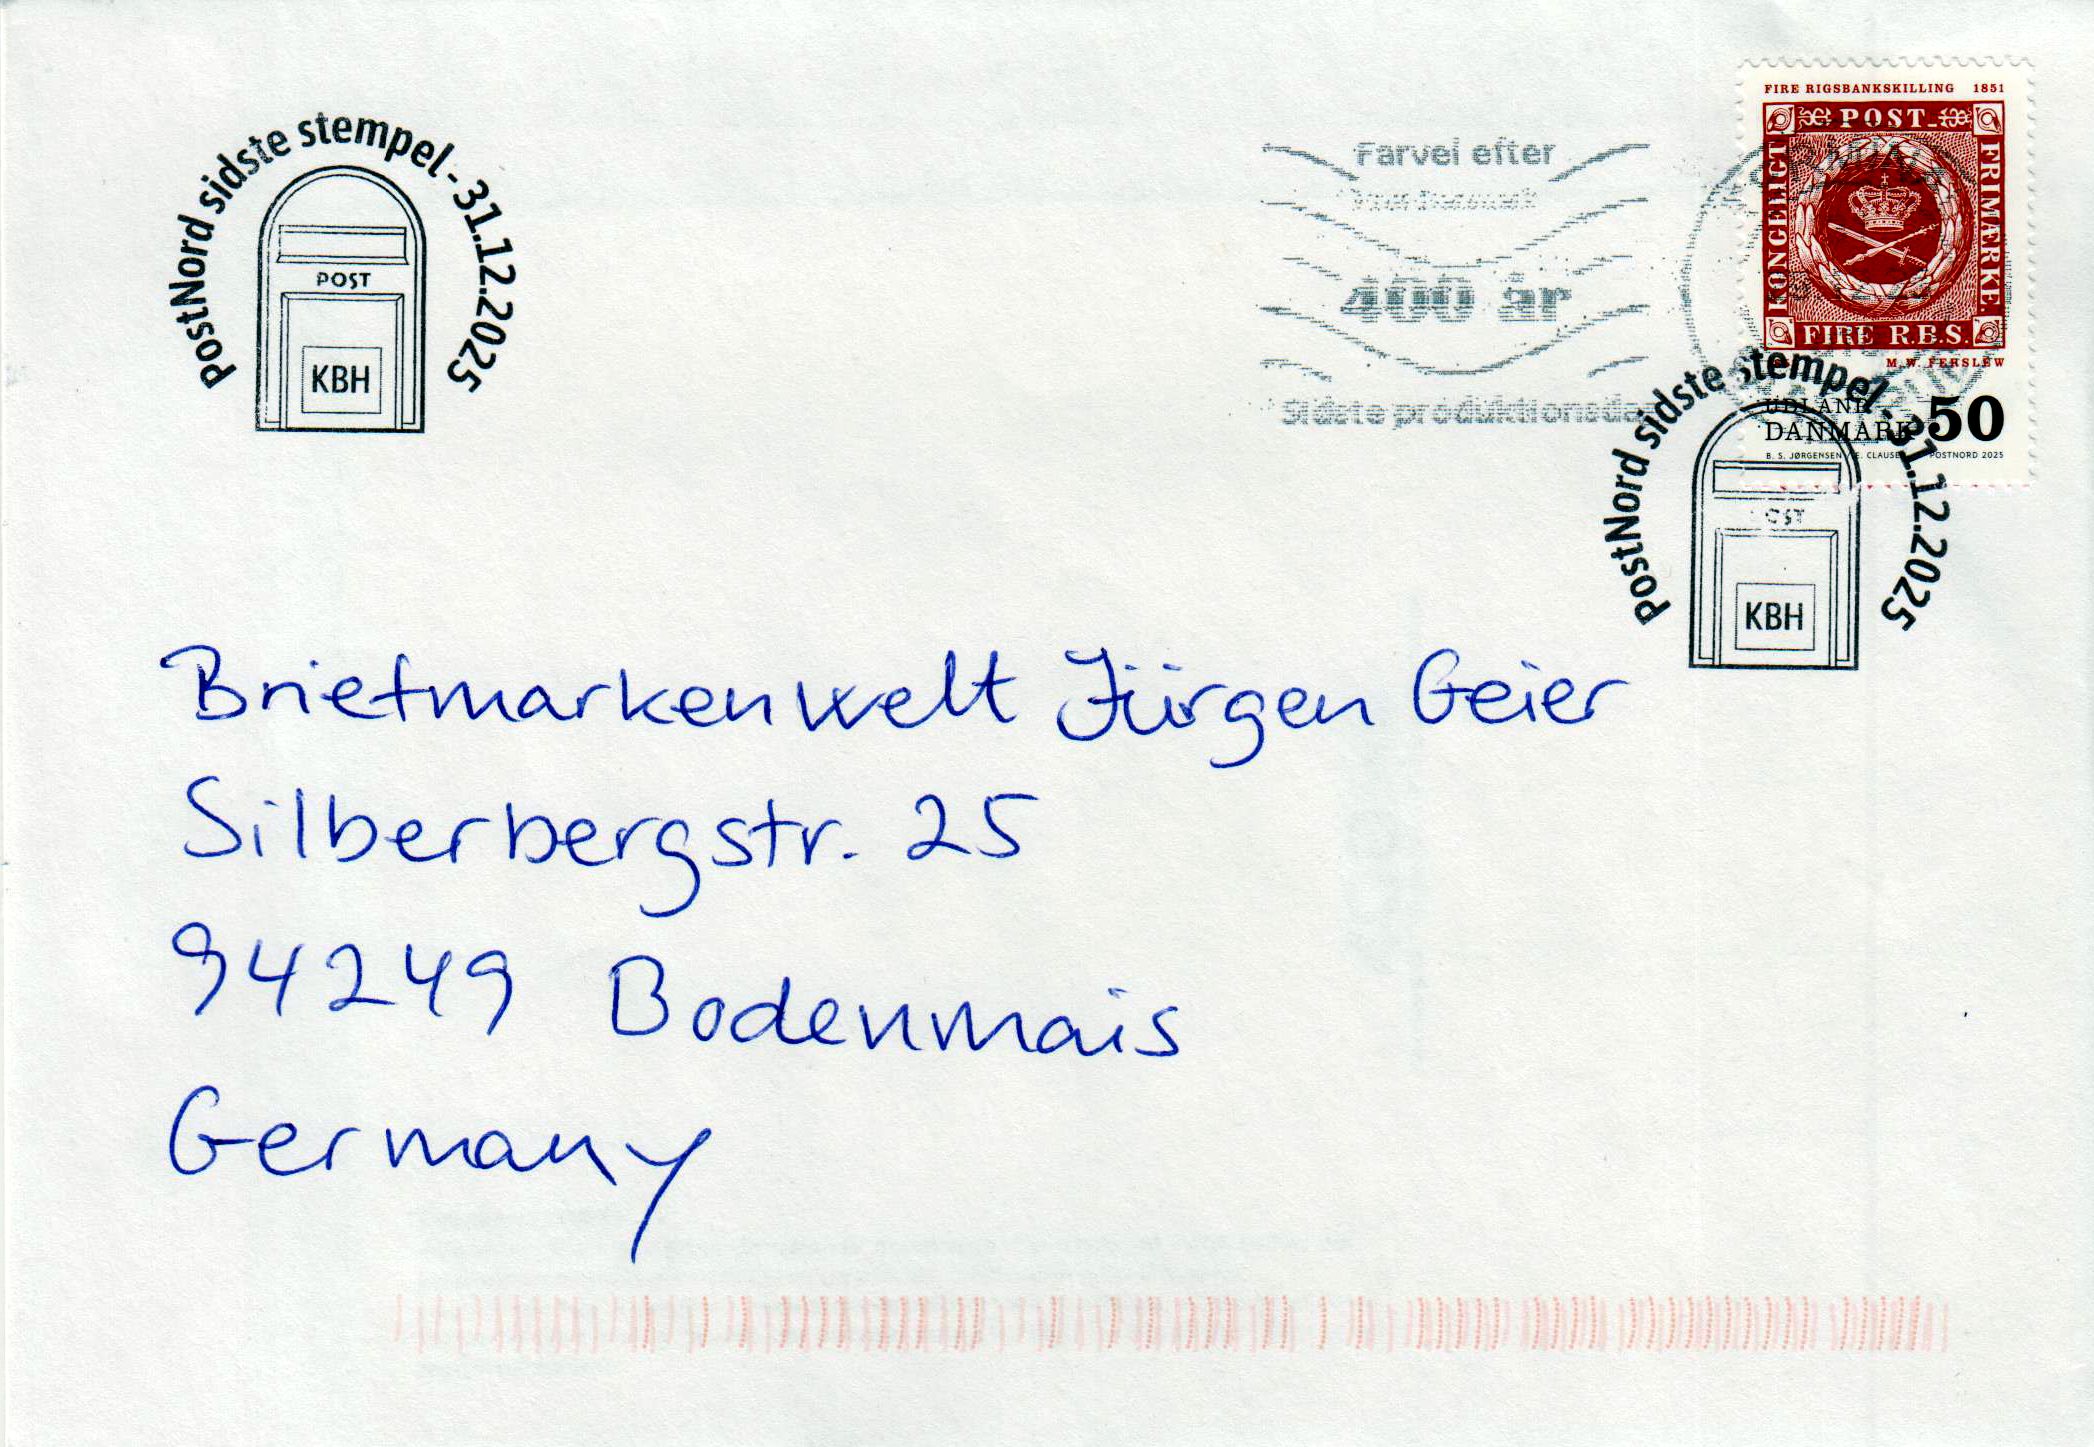 PostNord sidste stempel - 31.12.2025
POST
KBH
Farvel efter
400 år
Sidste produktionsdag
FIRE RIGSBANKSKILLING 1851
POST
KONGELIGT
FRIMÆRKE.
FIRE R.B.S.
M.W. FERSLEW
UDLAND
DANMARK 50
B. S. JØRGENSEN / E. CLAUSEN POSTNORD 2025
PostNord sidste stempel - 31.12.2025
OST
KBH
Briefmarkenwelt Jürgen Geier
Silberbergstr. 25
94249 Bodenmais
Germany